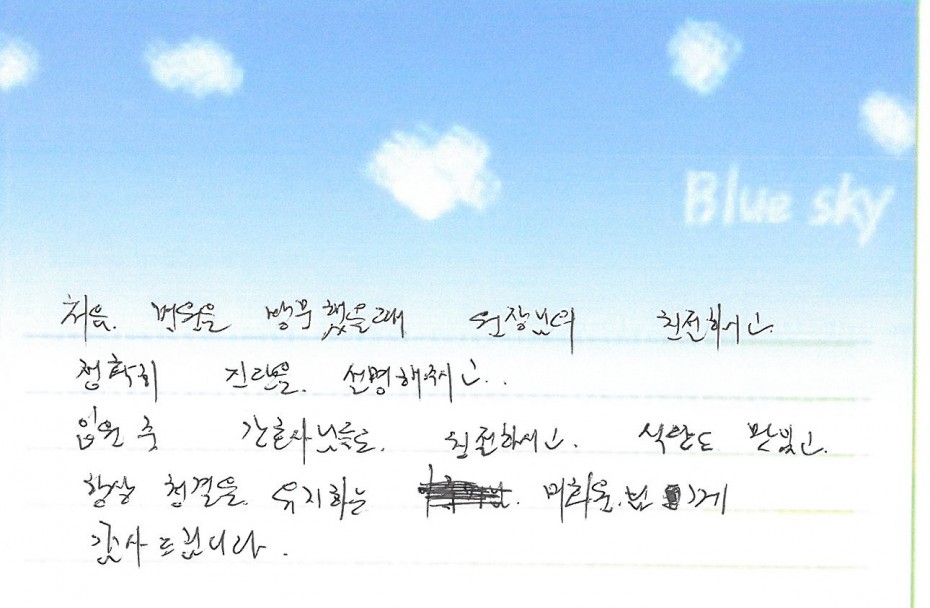 Blue sky
처음. 병원을 방문했을때 원장님의 친전하시고.
정확히 진료를. 설명해주시고..
입원 후 간호사님들도. 친전하시고. 식단도 맛있고.
항상 청결을 유지하는 미화원.님 에게
감사드립니다.